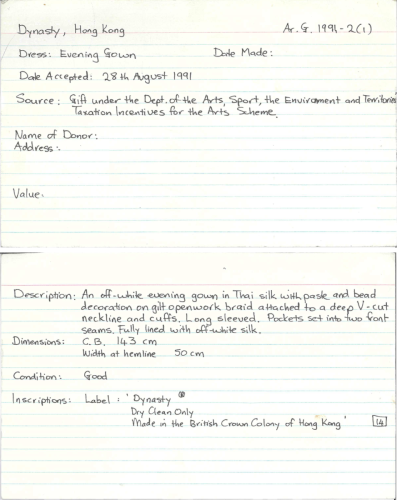 Dynasty, Hong Kong Ar. G. 1991-2(1)
Dress: Evening Gown Date Made:
Date Accepted: 28th August 1991
Source: Gift under the Dept. of the Arts, Sport, the Enviroment and Territories
Taxation Incentives for the Arts Scheme.
Name of Donor:
Address:
Value.
Description: An off-white evening gown in Thai silk with paste and bead
decoration on gilt openwork braid attached to a deep V-cut
neckline and cuffs. Long sleeved. Pockets set into two front
seams. Fully lined with off-white silk.
Dimensions: C.B. 143 cm
Width at hemline 50 cm
Condition: Good
Inscriptions: Label: 'Dynasty ®
Dry Clean Only
Made in the British Crown Colony of Hong Kong' 14